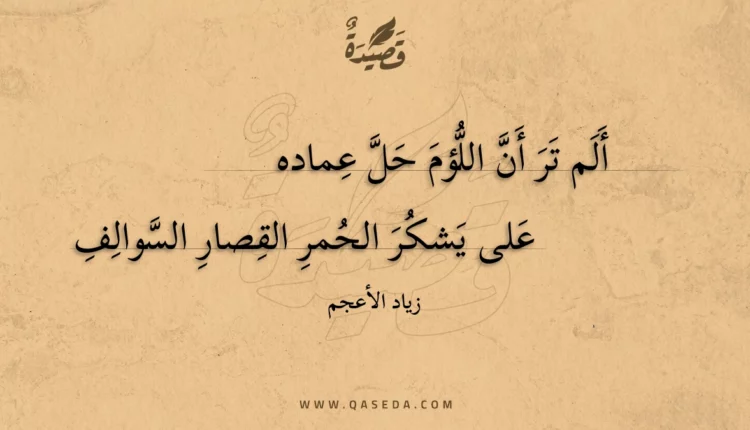 قَصِيْدَةٌ
أَلَم تَرَ أَنَّ اللُّؤمَ حَلَّ عِماده
عَلى يَشكُرَ الحُمرِ القِصارِ السَّوالِفِ
زياد الأعجم
WWW.QASEDA.COM